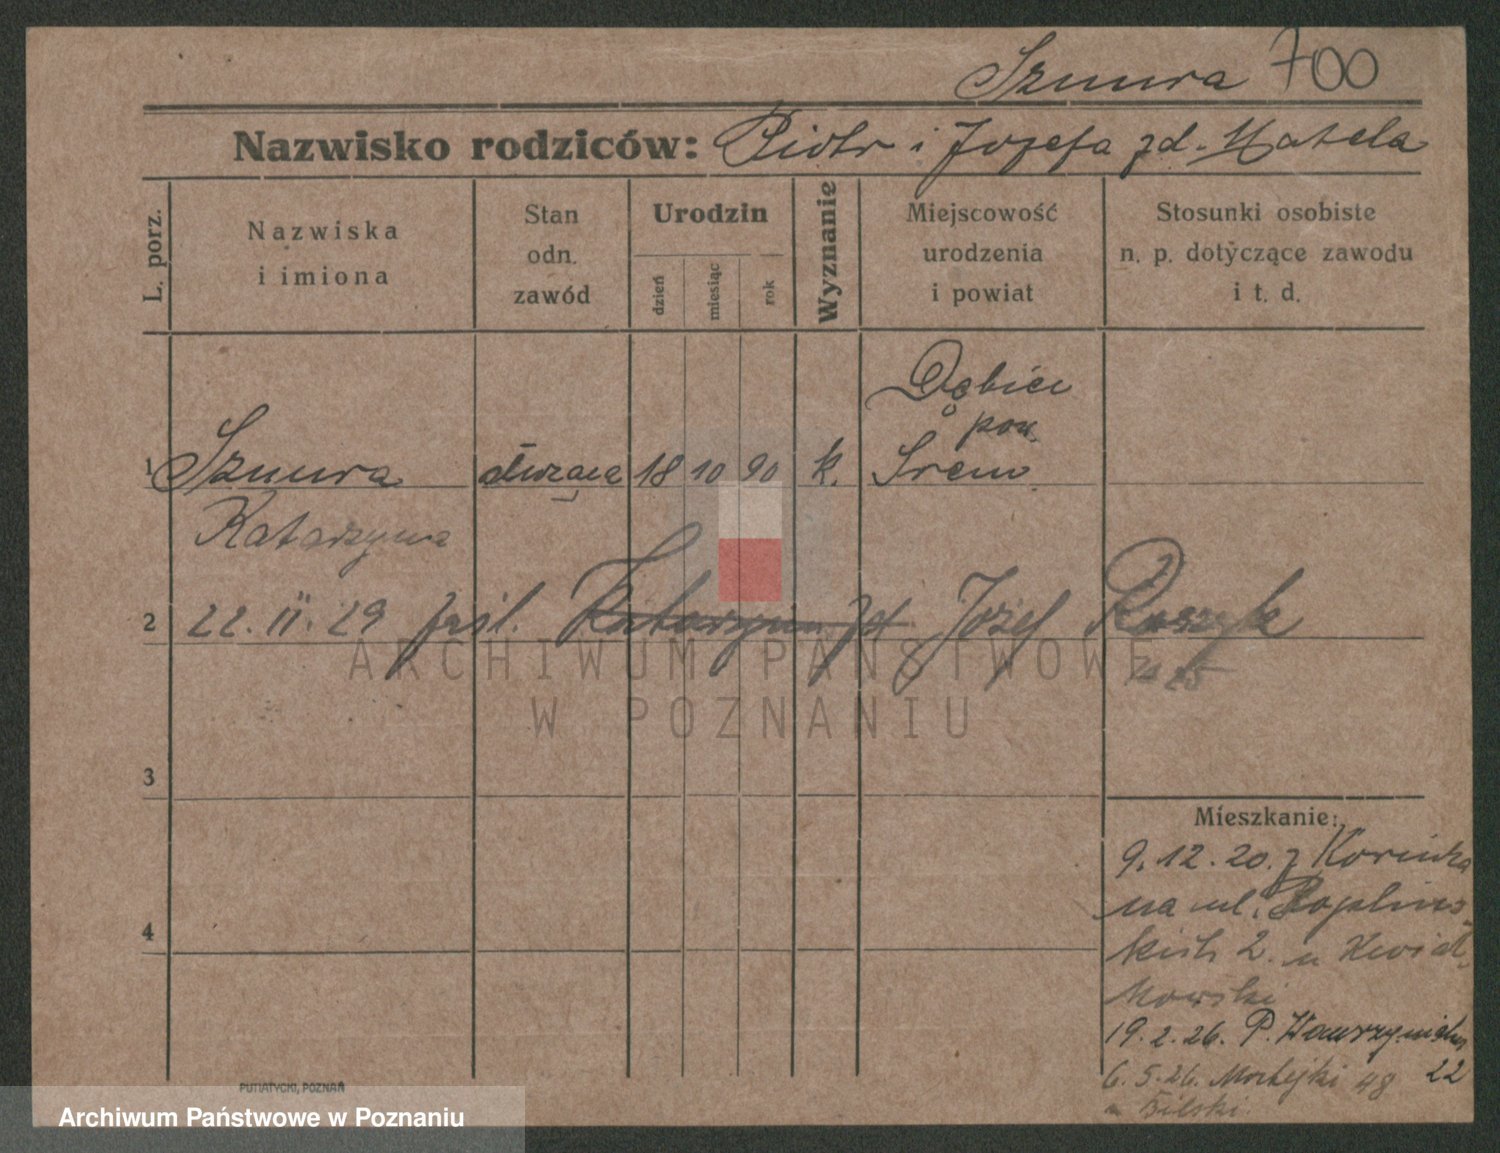 Szmura 700
Nazwisko rodziców: Piotr i Jozefa zd. Matela
L. porz.
Nazwiska
i imiona
Stan
odn.
zawód
Urodzin
dzień
miesiąc
rok
Wyznanie
Miejscowość
urodzenia
i powiat
Stosunki osobiste
n. p. dotyczące zawodu
i t. d.
Dębiec
pow.
1 Szmura służąca 18 10 90 k. Śrem
Katarzyna
2 22. II. 29 zaśl. Katarzyna Józef
ARCHIWUM PAŃSTWOWE
W POZNANIU
3
Mieszkanie:
9. 12. 20. z
na ul.
4
2. u Kwiat
kowski
19. 2. 26. P. Wawrzyniaka
22
6. 5. 26. Matejki 48
u Bilski
PUTIATYCKI, POZNAŃ
Archiwum Państwowe w Poznaniu